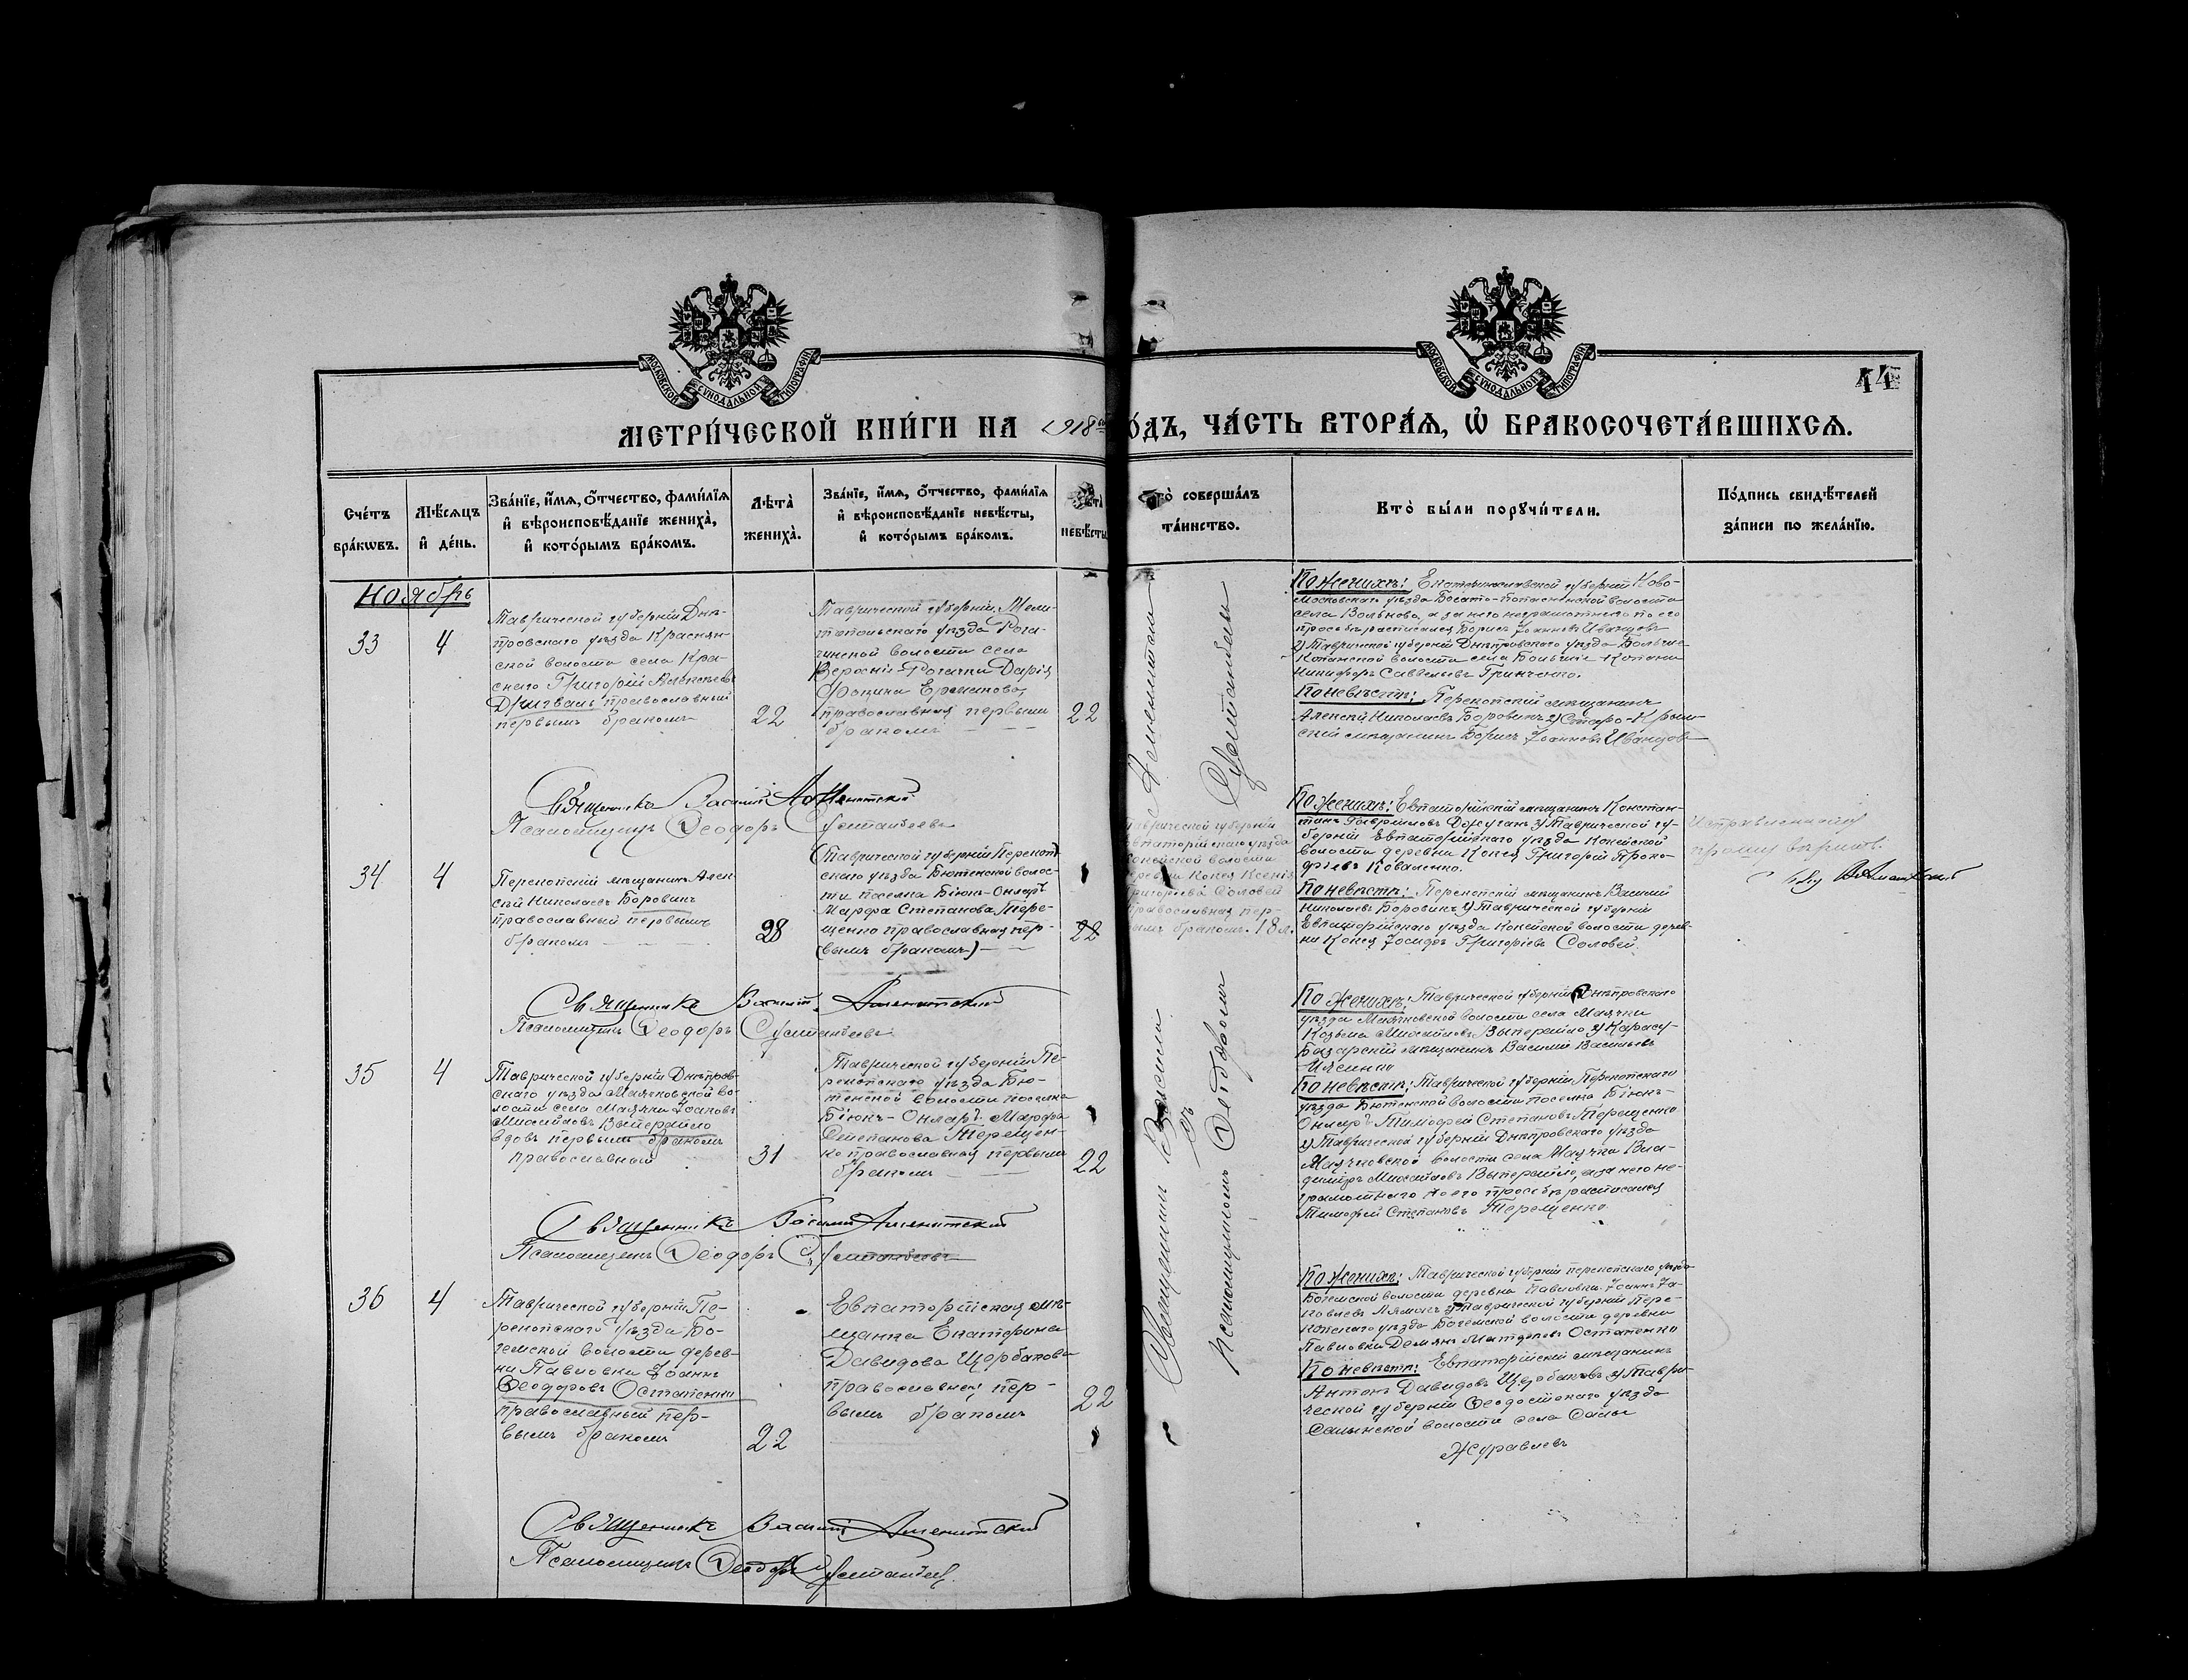 МОСКОВСКОЙ СѴНОДАЛЬНОЙ ТИПОГРАФІИ
МОСКОВСКОЙ СѴНОДАЛЬНОЙ ТИПОГРАФІИ
44
МЕТРИ́ЧЕСКОЙ КНИ́ГИ НА 1918 ГО́ДЪ, ЧА́СТЬ ВТОРА́Ѧ, Ѡ҆ БРАКОСОЧЕТА́ВШИХСѦ.
Сче́тъ
бра́кѡвъ.
Мѣ́сѧцъ
и҆ де́нь.
Зва́нїе, и҆́мѧ, ѻ҆́тчество, фами́лїѧ
и҆ вѣроисповѣ́данїе жениха̀,
и҆ кото́рымъ бра́комъ.
Лѣ́та̀
жениха̀.
Зва́нїе, и҆́мѧ, ѻ҆́тчество, фами́лїѧ
и҆ вѣроисповѣ́данїе невѣ́сты,
и҆ кото́рымъ бра́комъ.
Лѣ́та̀
невѣ́сты
Кто̀ соверша́лъ
та́инство.
Кто̀ бы́ли порꙋчи́тели.
По́дпись свидѣ́телей
за́писи по жела́нїю.
Ноябрь
33
4
Таврической губерніи Днѣ-
провскаго уѣзда Краснян-
ской волости села Кра-
снаго Григорій Алексѣевъ
православный
первымъ бракомъ
22
Таврической губерніи, Мели-
топольскаго уѣзда Рога-
чикской волости села
Верхній-Рогачикъ Дарія
Фокина Ермакова,
православная первымъ
бракомъ
22
По женихѣ: Екатеринославской губерніи Ново-
московскаго уѣзда волости
села а за него неграмотнаго по его
просьбѣ расписался Борисъ Іоанновъ Иванцовъ
2) Таврической губерніи Днѣпровскаго уѣзда Больше-
Копанской волости села Большіе Копани
Никифоръ Савельевъ Гринченко.
По невѣстѣ: Перекопскій мѣщанинъ
Алексій Николаевъ Боровикъ 2) Старо-Крым-
скій мѣщанинъ Борисъ Іоанновъ Иванцовъ
Священникъ Василій
Псаломщикъ Ѳеодоръ
34
4
Перекопскій мѣщанинъ Алек-
сій Николаевъ Боровикъ
православный первымъ
бракомъ
28
(Таврической губерніи Перекоп-
скаго уѣзда Бютенской волос-
ти поселка Біюкъ-Онларъ
Марфа Степанова Тере-
щенко православная пер-
вымъ бракомъ)
22
Таврической губерніи
Евпаторійскаго уѣзда
Кокейской волости
деревни Кокея Ксенія
Григорьева Соловей
православная пер-
вымъ бракомъ. 18 л.
По женихѣ: Евпаторійскій мѣщанинъ Констан-
тинъ Гавриловъ 2) Таврической гу-
берніи Евпаторійскаго уѣзда Кокейской
волости деревни Кокея Григорій Проко-
фьевъ Коваленко.
По невѣстѣ: Перекопскій мѣщанинъ Василій
Николаевъ Боровикъ 2) Таврической губерніи
Евпаторійскаго уѣзда Кокейской волости дерев-
ни Кокея Іосифъ Григорьевъ Соловей
прошу вѣрить.
Священникъ Василій
Псаломщикъ Ѳеодоръ
35
4
Таврической губерніи Днѣпров-
скаго уѣзда Маячковской во-
лости села Маячки Іоаковъ
Михайловъ Выперайло
вдовъ первымъ бракомъ
православный
31
Таврической губерніи Пе-
рекопскаго уѣзда Бю-
тенской волости поселка
Біюкъ-Онларъ Марфа
Степанова Терещен-
ко православная первымъ
бракомъ
22
По женихѣ: Таврической губерніи Днѣпровскаго
уѣзда Маячковской волости села Маячки
Козьма Михайловъ Выперайло 2) Карасу-
Базарскій мѣщанинъ Василій Васильевъ
По невѣстѣ: Таврической губерніи Перекопскаго
уѣзда Бютенской волости поселка Біюкъ-
Онларъ Тимофей Степановъ Терещенко
2) Таврической губерніи Днѣпровскаго уѣзда
Маячковской волости села Маячки Вла-
димиръ Михайловъ Выперайло, а за него не-
грамотнаго по его просьбѣ расписался
Тимофей Степановъ Терещенко.
Священникъ Василій
Псаломщикъ Ѳеодоръ
36
4
Таврической губерніи Пе-
рекопскаго уѣзда Бо-
гемской волости дерев-
ни Павловки Іоаннъ
Ѳеодоровъ Остапенко
православный пер-
вымъ бракомъ
22
Евпаторійская мѣ-
щанка Екатерина
Давидова Щербакова
православная пер-
вымъ бракомъ
22
По женихѣ: Таврической губерніи перекопскаго уѣзда
Богемской волости деревни Павловки Іоаннъ Іа-
ковлевъ 2) Таврической губерніи Пере-
копскаго уѣзда Богемской волости деревни
Павловки Остапенко
По невѣстѣ: Евпаторійскій мѣщанинъ
Антонъ Давидовъ Щербаковъ 2) Таври-
ческой губерніи Ѳеодосійскаго уѣзда
Салынской волости села Салы
Журавлевъ
Священникъ Василій
Псаломщикъ Ѳеодоръ
Священникъ Василій
съ
Псаломщикомъ Ѳеодоромъ